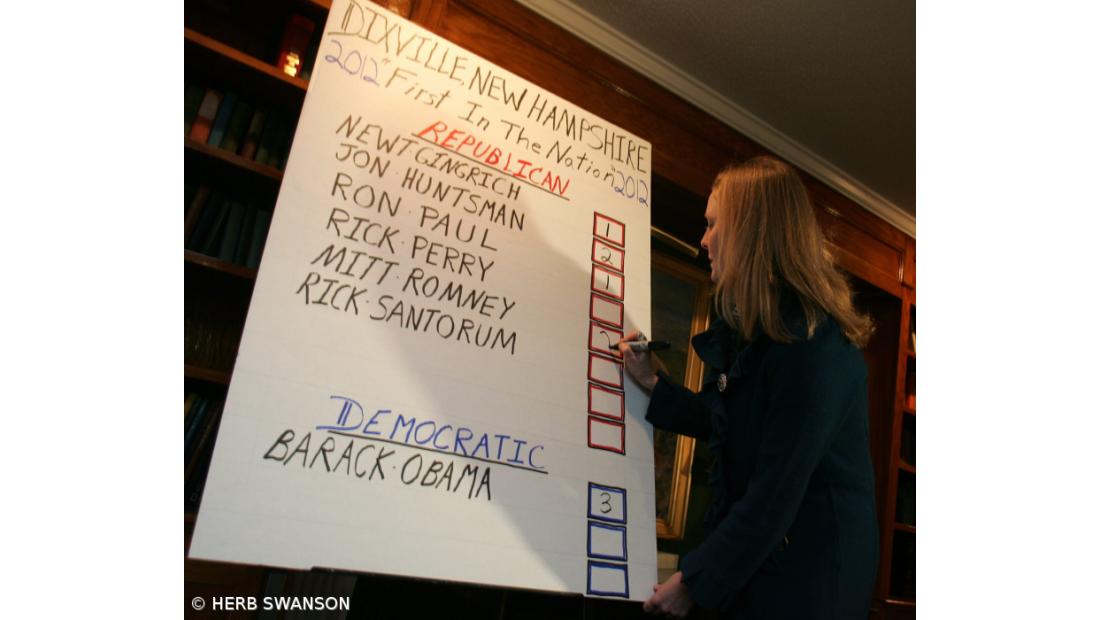 DIXVILLE, NEW HAMPSHIRE
2012 "First In The Nation" 2012
REPUBLICAN
NEWT·GINGRICH 1
JON·HUNTSMAN 2
RON·PAUL 1
RICK·PERRY
MITT·ROMNEY 2
RICK·SANTORUM
DEMOCRATIC
BARACK·OBAMA 3
© HERB SWANSON